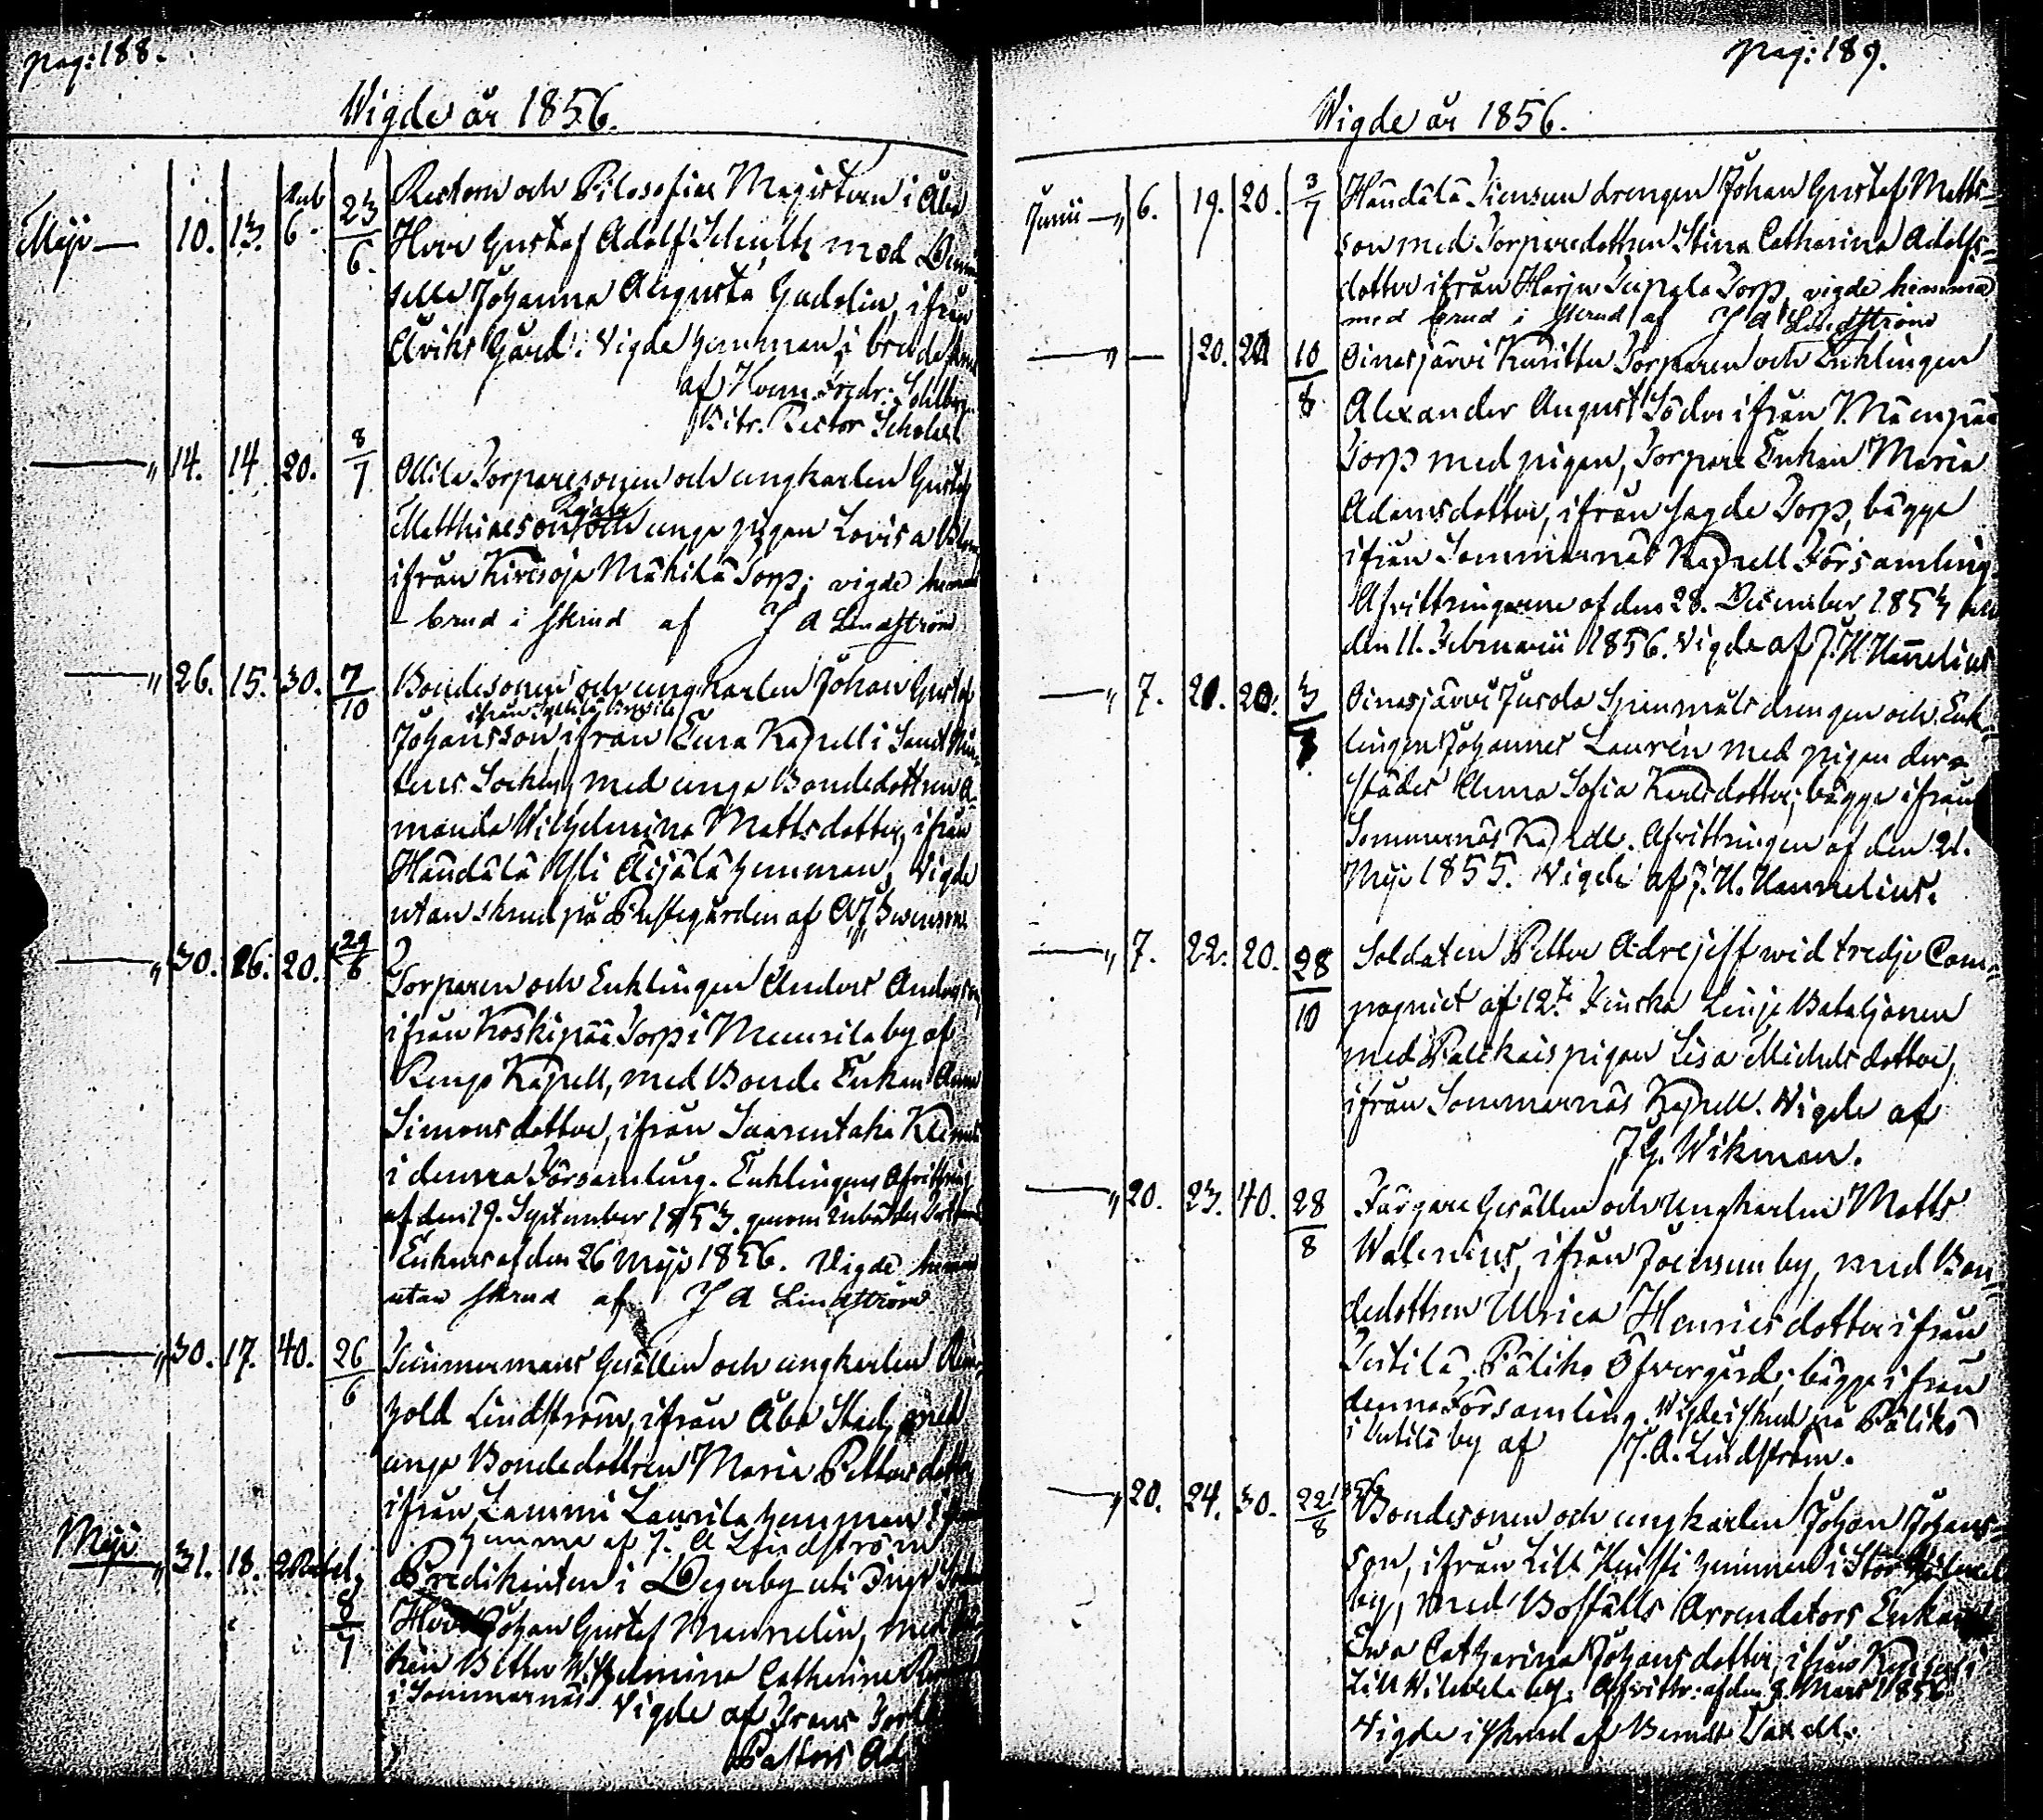 pag: 188.
Wigde år 1856.
Rub
Maji — 10. 13. 6. 23/6. Rectorn och Filosofiae Magistern i Åbo
Herr Gustaf Adolf Schultz med Dem
selle Johanna Augusta Gadolin, ifrån
Åviks Gård. Vigde hemman i brudskrud
af Hem. Fredr: Sohlberg
Vitr. Rector Scholæ.
— " 14. 14. 20. 8/7 Ollila Torparesonen och ungkarlen Gustaf
Matthiaeson och unga pigan Lovisa
ifrån Kirisoja Mäkilä Torp; vigde hemma
brud i skrud af J A Lindström
— " 26. 15. 30. 7/10 Bondesonen och ungkarlen Johan Gustaf
Johansson, ifrån Eura Kapell i Sanct Mår
tens Socken, med unga Bondedottren A
manda Wilhelmina Mattsdotter, ifrån
Haudälä Äijälä hemman, Vigde
utan skrud på Prestegården af
— " 30. 16. 20. 29/6 Torparen och Enklingen Anders Anders
ifrån Koskipää Torp i Meurila by af
Rengo Kapell, med Bonde Enkan Anna
Simonsdotter, ifrån Saarentaka
i denna Församling. Enklingens Afvittring
af den 19. September 1853. genom
Enkans af den 26 Maji 1856. Vigde hemma
utan skrud af J A Lindström
— " 30. 17. 40. 26/6 Timmermans Gesällen och ungkarlen Rein
hold Lindström, ifrån Åbo Stad, med
unga Bondedottren Maria Pettersdotter
ifrån Lammi Laurila hemman
hemma af J. A Lindström
Maji " 31. 18. 2 Rubel, 8/7 Predikanten i Degerby uti Ingo Socken
Herr Johan Gustaf Mennelin, med
ken Wilhelmina Catharina
i Sommernäs. Vigde af Frans
Pastors Adj

pag: 189.
Wigde år 1856.
Junii — " 6. 19. 20. 3/7 Haudälä Simsun drengen Johan Gustaf Matts-
son med Torparedottren Stina Catharina Adolfs-
dotter ifrån Harju Torp, vigde hemma
med brud i skrud af J A Lindström
— " — 20. 20 10/8 Oinasjärvi Kuritta Torparen och Enklingen
Alexander August Söder ifrån
Torp med pigan, Torpare Enkan Maria
Adamsdotter, ifrån sagde Torp, bägge
ifrån Sommarnäs Kapell Församling.
Afvittringarne af den 28. December 1853 och
den 11. Februarii 1856. Vigde af J. H. Hannelius
— " 7. 21. 20. 3/8 Oinasjärvi Jusola Spinmäls drengen och Enk
lingen Johannes Laurén med pigan der-
städes Anna Sofia Karlsdotter; bägge ifrån
Sommernäs Kapell. Afvittringen af den 21.
Maji 1855. Vigde af J. H. Hannelius.
— " 7. 22. 20. 28/10 Soldaten Petter Adrejeff vid tredje Com-
pagniet af 12:te Finska Linje Bataljonen
med pigan Lisa Michelsdotter,
ifrån Sommarnäs Kapell. Wigde af
J G. Wikman.
— " 20. 23. 40. 28/8 Färgare Gesällen och Ungkarlen Matts
Walenius, ifrån Joensuu by, med Bon-
dedottren Ulrica Henricsdotter ifrån
Terttilä, Päliko Öfvergård; bägge ifrån
denna Församling. Vigde i skrud på Päliko
i by af J. A. Lindström.
— " 20. 24. 30. 22/8 1856 Bondesonen och ungkarlen Johan Johans-
son, ifrån Lill hemman i Stor
by, med Boställs Arrendators Enkan
Eva Catharina Johansdotter, ifrån
Lill by. Afvittr: af den 8. Mars 1856.
Vigde i skrud af Berndt